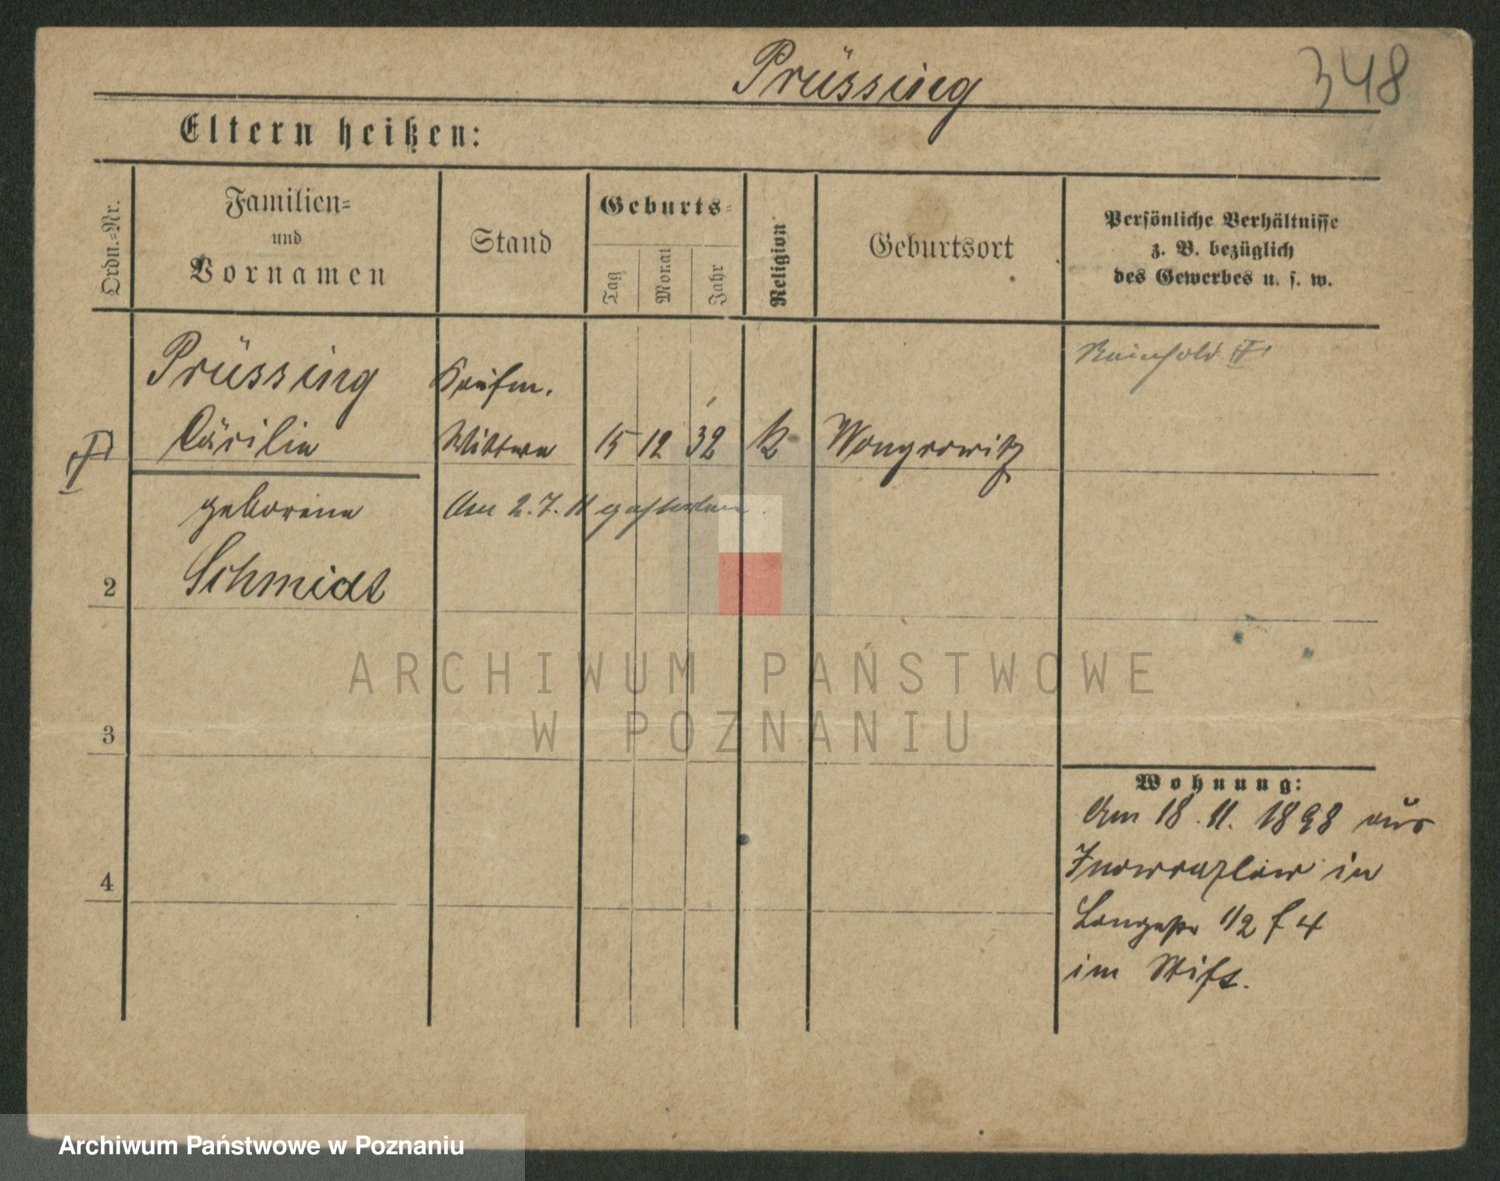 Prüssing
348
Eltern heißen:
Ordn.-Nr.
Familien-
und
Vornamen
Stand
Geburts-
Tag
Monat
Jahr
Religion
Geburtsort
Persönliche Verhältnisse
z. B. bezüglich
des Gewerbes u. s. w.
Prüssing Kaufm. Reinhold
Cäcilie Wittwe 15 12 32 k Wongrowitz
geborene Am 2.7.11 gestorben.
2 Schmidt
3
4
Wohnung:
Am 18.11. 1898 aus
Inowrazlaw in
Langestr 1/2 f 4
im Stift.
ARCHIWUM PAŃSTWOWE
W POZNANIU
Archiwum Państwowe w Poznaniu